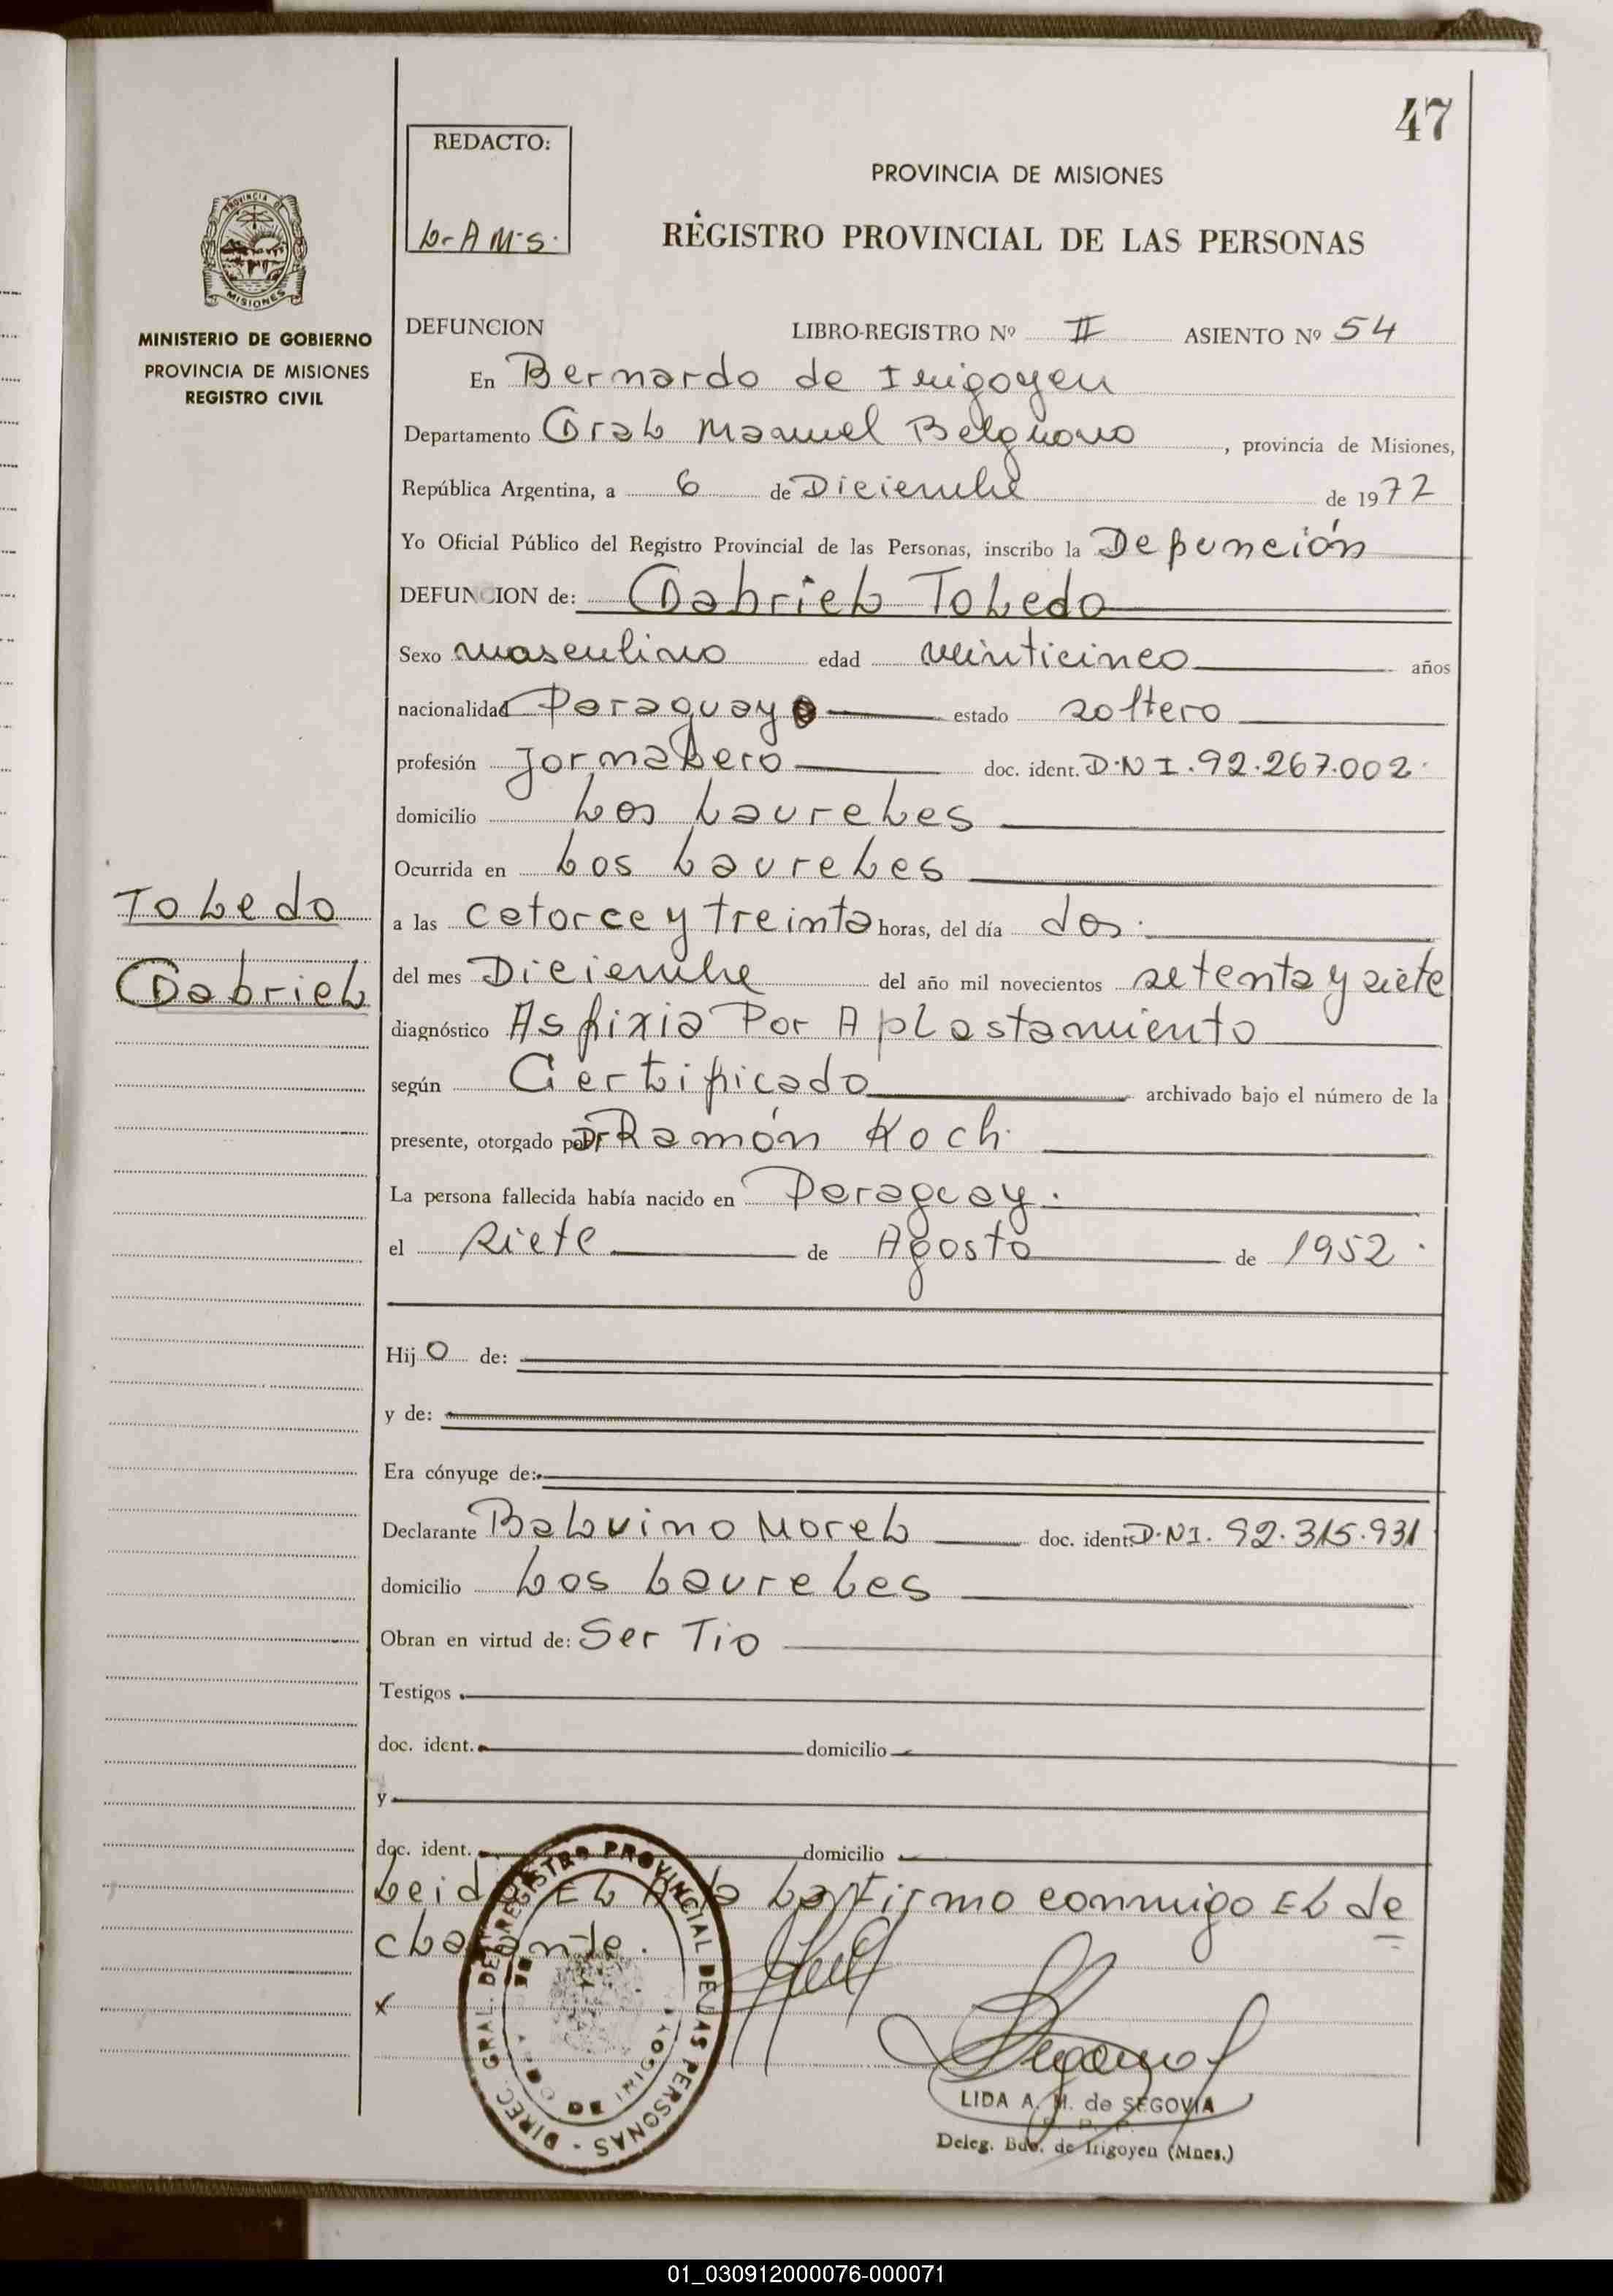 47
REDACTO:
L-A M-S.
PROVINCIA DE MISIONES
REGISTRO PROVINCIAL DE LAS PERSONAS
PROVINCIA DE
MISIONES
MINISTERIO DE GOBIERNO
PROVINCIA DE MISIONES
REGISTRO CIVIL
DEFUNCION LIBRO-REGISTRO Nº II ASIENTO Nº 54
En Bernardo de Irigoyen
Departamento Gral Manuel Belgrano, provincia de Misiones,
República Argentina, a 6 de Diciembre de 1972
Yo Oficial Público del Registro Provincial de las Personas, inscribo la Defunción
DEFUNCION de: Gabriel Toledo
Sexo masculino edad veinticinco años
nacionalidad Paraguayo estado soltero
profesión Jornalero doc. ident. D.N I.92.267.002.
domicilio Los Laureles
Ocurrida en Los Laureles
Toledo
Gabriel
a las catorce y treinta horas, del día dos.
del mes Diciembre del año mil novecientos setenta y siete
diagnóstico Asfixia Por Aplastamiento
según Certificado archivado bajo el número de la
presente, otorgado por Dr Ramón Koch.
La persona fallecida había nacido en Paraguay.
el siete de Agosto de 1952.
Hijo de:
y de:
Era cónyuge de:
Declarante Balvino Morel doc. ident. D.N I. 92.315.931
domicilio Los Laureles
Obran en virtud de: Ser Tio
Testigos
doc. ident. domicilio
y
doc. ident. domicilio
Leida El Acta La Firmo conmigo El de
clarante.
x
DIREC. GRAL. DEL REGISTRO PROVINCIAL DE LAS PERSONAS -
DE IRIGOYEN
LIDA A. M. de SEGOVIA
Deleg. Bdo. de Irigoyen (Mnes.)
01_030912000076-000071